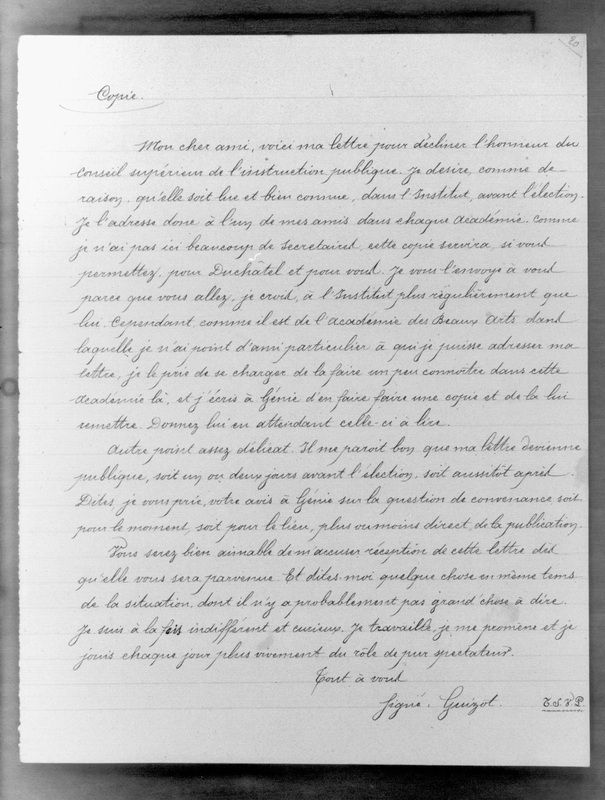 20
Copie.
Mon cher ami, voici ma lettre pour décliner l'honneur du
Conseil supérieur de l'instruction publique. Je désire, comme de
raison, qu'elle soit lue et bien connue, dans l'Institut, avant l'élection.
Je l'adresse donc à l'un de mes amis dans chaque Académie. Comme
je n'ai pas ici beaucoup de Secrétaires, cette copie servira, si vous
permettez, pour Duchâtel et pour vous. Je vous l'envoye à vous
parce que vous allez, je crois, à l'Institut plus régulièrement que
lui. Cependant, comme il est de l'Académie des Beaux Arts dans
laquelle je n'ai point d'ami particulier à qui je puisse adresser ma
lettre, je le prie de se charger de la faire un peu connoître dans cette
Académie là, et j'écris à Génie d'en faire faire une copie et de la lui
remettre. Donnez lui en attendant celle-ci à lire.
Autre point assez délicat. Il me paroit bon que ma lettre devienne
publique, soit un ou deux jours avant l'élection, soit aussitôt après.
Dites, je vous prie, votre avis à Génie sur la question de convenance, soit
pour le moment, soit pour le lieu, plus ou moins direct, de la publication.
Vous serez bien aimable de m'accuser réception de cette lettre dès
qu'elle vous sera parvenue. Et dites-moi quelque chose en même tems
de la situation, dont il n'y a probablement pas grand'chose à dire.
Je suis à la fois indifférent et curieux. Je travaille, je me promène et je
jouis chaque jour plus vivement du rôle de pur spectateur.
Tout à vous
Signé. Guizot.
T.S.V.P.